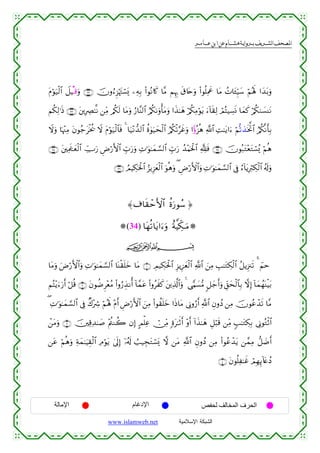 المصحف الشريف برواية هشام عن ابن عامر
وَبَدَا لَهُمْ سَيِّئَاتُ مَا عَمِلُوا۟ وَحَاقَ بِهِم مَّا كَانُوا۟ بِهِۦ يَسْتَهْزِءُونَ وَقِيلَ ٱلْيَوْمَ
نَنسَىٰكُمْ كَمَا نَسِيتُمْ لِقَآءَ يَوْمِكُمْ هَٰذَا وَمَأْوَىٰكُمُ ٱلنَّارُ وَمَا لَكُم مِّن نَّٰصِرِينَ ذَٰلِكُم
بِأَنَّكُمُ ٱتَّخَذتُّمْ ءَايَٰتِ ٱللَّهِ هُزُؤًا وَغَرَّتْكُمُ ٱلْحَيَوٰةُ ٱلدُّنْيَا ۚ فَٱلْيَوْمَ لَا يُخْرَجُونَ مِنْهَا وَلَا
هُمْ يُسْتَعْتَبُونَ فَلِلَّهِ ٱلْحَمْدُ رَبِّ ٱلسَّمَٰوَٰتِ وَرَبِّ ٱلْأَرْضِ رَبِّ ٱلْعَٰلَمِينَ
وَلَهُ ٱلْكِبْرِيَآءُ فِى ٱلسَّمَٰوَٰتِ وَٱلْأَرْضِ ۖ وَهُوَ ٱلْعَزِيزُ ٱلْحَكِيمُ
سُورَةُ ٱلْأَحْقَافِ
مَكِّيَّةٌ وَءَايَاتُهَا (34)
بِسْمِ ٱللَّهِ ٱلرَّحْمَٰنِ ٱلرَّحِيمِ
حمٓ ۚ تَنزِيلُ ٱلْكِتَٰبِ مِنَ ٱللَّهِ ٱلْعَزِيزِ ٱلْحَكِيمِ مَا خَلَقْنَا ٱلسَّمَٰوَٰتِ وَٱلْأَرْضَ وَمَا
بَيْنَهُمَآ إِلَّا بِٱلْحَقِّ وَأَجَلٍ مُّسَمًّى ۚ وَٱلَّذِينَ كَفَرُوا۟ عَمَّآ أُنذِرُوا۟ مُعْرِضُونَ قُلْ أَرَءَيْتُم
مَّا تَدْعُونَ مِن دُونِ ٱللَّهِ أَرُونِى مَاذَا خَلَقُوا۟ مِنَ ٱلْأَرْضِ أَمْ لَهُمْ شِرْكٌ فِى ٱلسَّمَٰوَٰتِ ۖ
ٱئْتُونِى بِكِتَٰبٍ مِّن قَبْلِ هَٰذَآ أَوْ أَثَٰرَةٍ مِّنْ عِلْمٍ إِن كُنتُمْ صَٰدِقِينَ وَمَنْ
أَضَلُّ مِمَّن يَدْعُوا۟ مِن دُونِ ٱللَّهِ مَن لَّا يَسْتَجِيبُ لَهُۥٓ إِلَىٰ يَوْمِ ٱلْقِيَٰمَةِ وَهُمْ عَن
دُعَآئِهِمْ غَٰفِلُونَ
الحرف المخالف لحفص الإدغام الإمالة
الشبكة الإسلامية www.islamweb.net